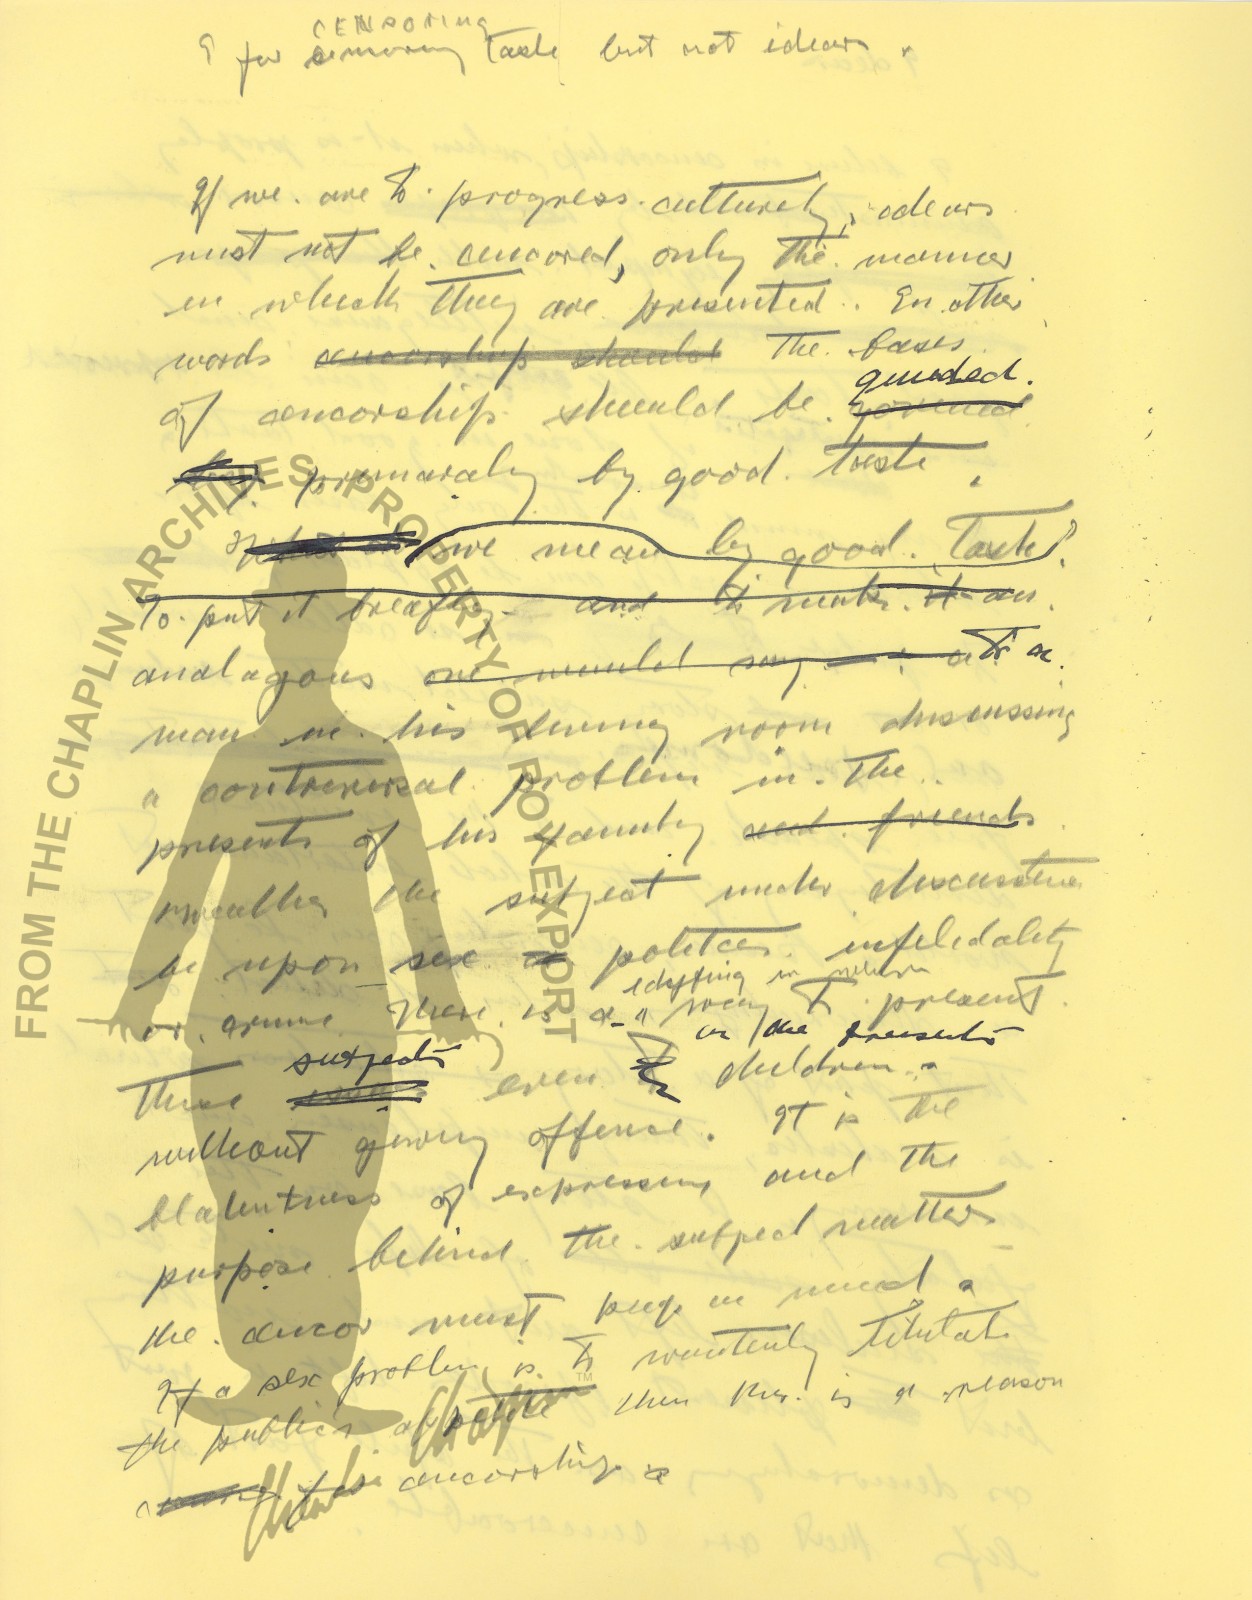 CENSORING
I for censoring taste but not idears.
If we. are to progress culturely, idears
must not be censored, only the manner
in which they are presented. In other
words censorship should the bases
guided.
of censorship should be governed
by primaraly by good taste.
we mean by good. taste?
To put it breafly - and to make it an
analagous one would say to a
man in his living room discussing
a controversal problem in the
presents of his family and friends
weather the subject under discussion
be upon sex or politics infeledality
edifying in
or crime. There is a way to present
subjects in the presents
these even children.
without giving offence. It is the
blatentness of expression and the
purpose behind the subject matter
the censor must keep in mind.
If a sex problem is to wantenly titulate
the publics appetite then ther. is a reason
for censorship
FROM THE CHAPLIN ARCHIVES. PROPERTY OF ROY EXPORT
Charlie Chaplin ™